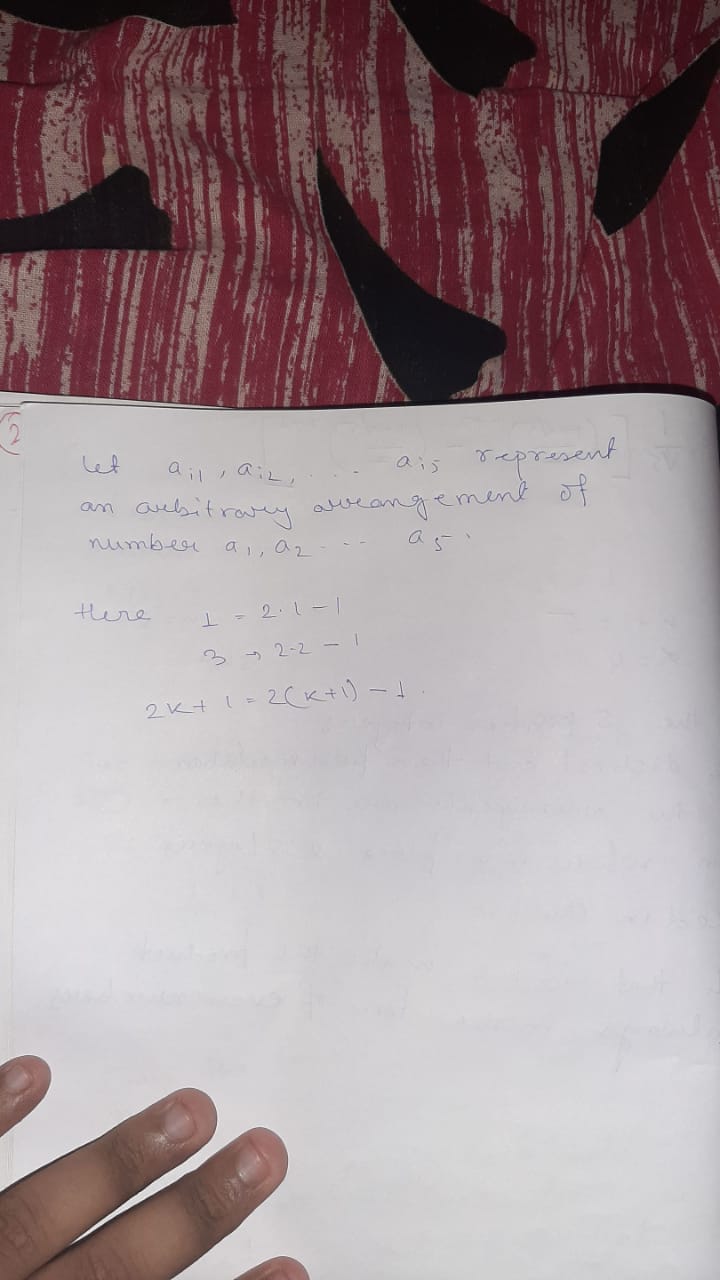 2
Let ai1, ai2, .... ai5 represent
an arbitrary arrangement of
number a1, a2 .... a5.
Here 1 = 2.1-1
3 → 2.2 - 1
2k+1 = 2(k+1) - 1.